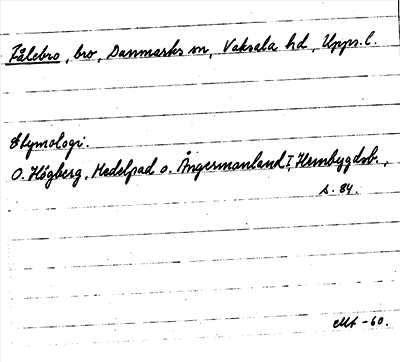 Fålebro, bro, Danmarks sn, Vaksala hd, Upps. l.
Etymologi:
O. Högberg, Medelpad o. Ångermanland I, Hembygdsb.,
s. 84.
-60.